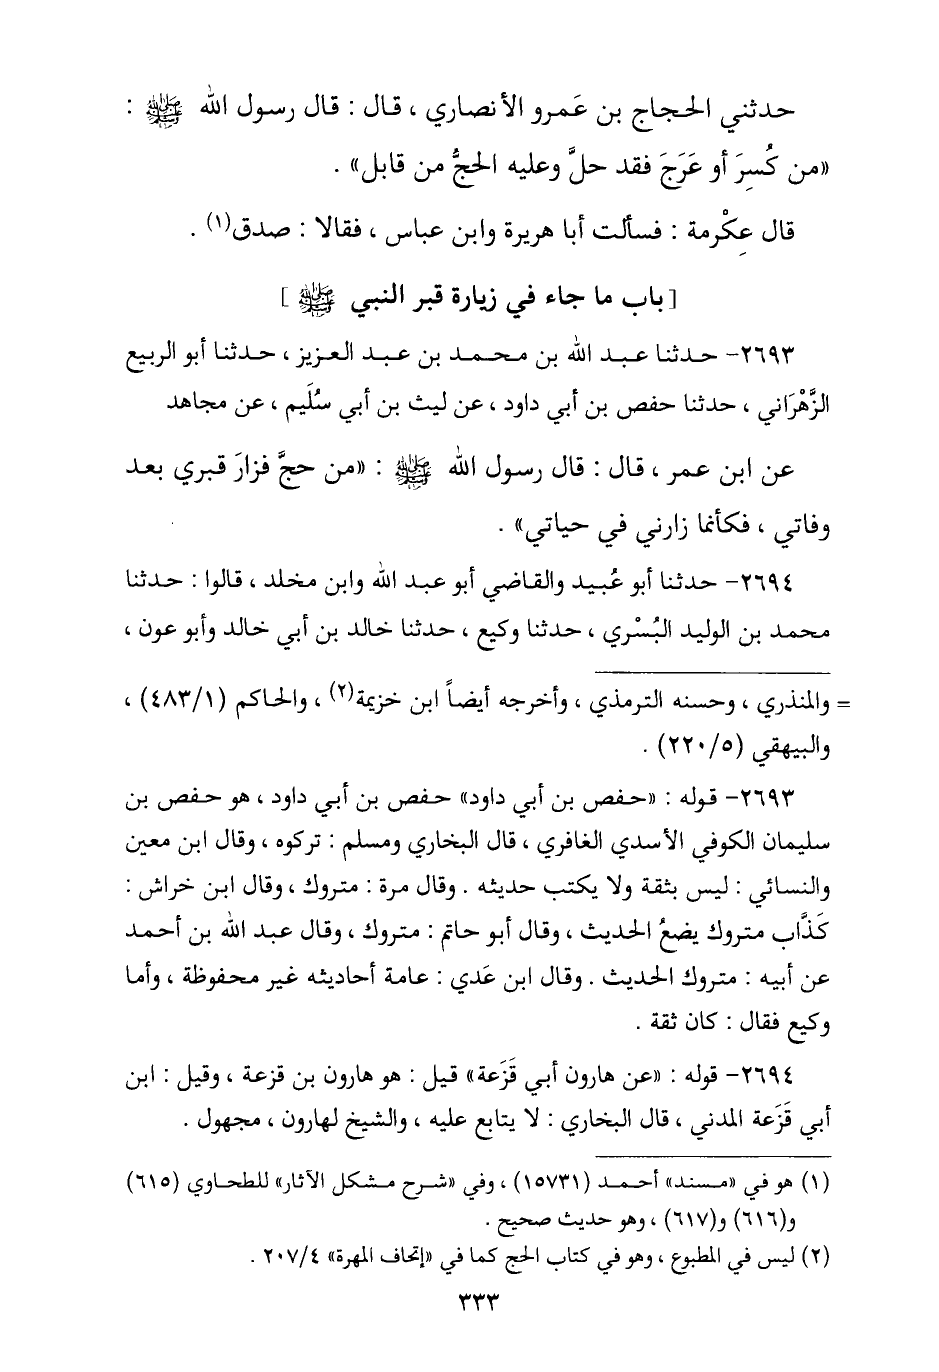 حدثني الحجاج بن عَمرو الأنصاري ، قال : قال رسول الله ﷺ :
«من كُسِرَ أو عَرَجَ فقد حلَّ وعليه الحجُّ من قابل» .
قال عِكْرمة : فسألت أبا هريرة وابن عباس ، فقالا : صدق(١) .
[باب ما جاء في زيارة قبر النبي ﷺ ]
٢٦٩٣- حدثنا عبد الله بن محمد بن عبد العزيز ، حدثنا أبو الربيع
الزَّهْرَاني ، حدثنا حفص بن أبي داود ، عن ليث بن أبي سُلَيم ، عن مجاهد
عن ابن عمر ، قال : قال رسول الله ﷺ : «من حجَّ فزارَ قبري بعد
وفاتي ، فكأنما زارني في حياتي» .
٢٦٩٤- حدثنا أبو عُبيد والقاضي أبو عبد الله وابن مخلد ، قالوا : حدثنا
محمد بن الوليد البُسْري ، حدثنا وكيع ، حدثنا خالد بن أبي خالد وأبو عون ،
= والمنذري ، وحسنه الترمذي ، وأخرجه أيضاً ابن خزيمة(٢) ، والحاكم (٤٨٣/١) ،
والبيهقي (٢٢٠/٥) .
٢٦٩٣- قوله : «حفص بن أبي داود» حفص بن أبي داود ، هو حفص بن
سليمان الكوفي الأسدي الغافري ، قال البخاري ومسلم : تركوه ، وقال ابن معين
والنسائي : ليس بثقة ولا يكتب حديثه . وقال مرة : متروك ، وقال ابن خراش :
كَذَّاب متروك يضعُ الحديث ، وقال أبو حاتم : متروك ، وقال عبد الله بن أحمد
عن أبيه : متروك الحديث . وقال ابن عَدي : عامة أحاديثه غير محفوظة ، وأما
وكيع فقال : كان ثقة .
٢٦٩٤- قوله : «عن هارون أبي قَزَعة» قيل : هو هارون بن قزعة ، وقيل : ابن
أبي قَزَعة المدني ، قال البخاري : لا يتابع عليه ، والشيخ لهارون ، مجهول .
(١) هو في «مسند» أحمد (١٥٧٣١) ، وفي «شرح مشكل الآثار» للطحاوي (٦١٥)
و(٦١٦) و(٦١٧) ، وهو حديث صحيح .
(٢) ليس في المطبوع ، وهو في كتاب الحج كما في «إتحاف المهرة» ٢٠٧/٤ .
٣٣٣